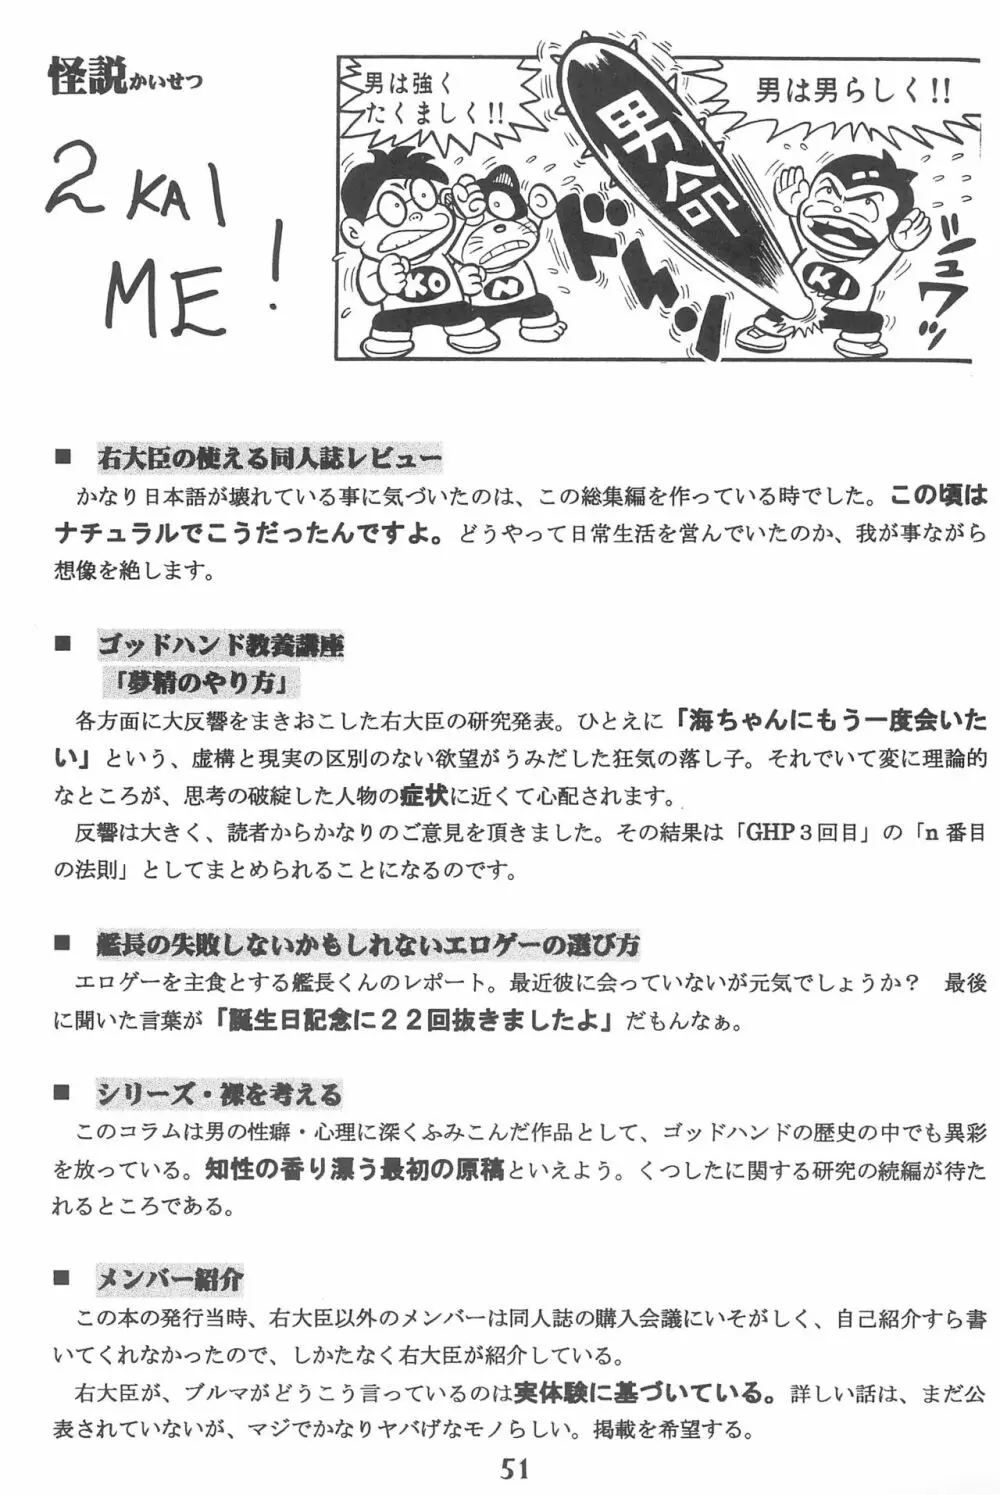 怪説かいせつ
2 KAI
ME!
男は強く
たくましく!!
男は男らしく!!
男命
ドドーン
ジュワッ
KO
N
KI
■ 右大臣の使える同人誌レビュー
かなり日本語が壊れている事に気づいたのは、この総集編を作っている時でした。この頃は
ナチュラルでこうだったんですよ。どうやって日常生活を営んでいたのか、我が事ながら
想像を絶します。
■ ゴッドハンド教養講座
「夢精のやり方」
各方面に大反響をまきおこした右大臣の研究発表。ひとえに「海ちゃんにもう一度会いた
い」という、虚構と現実の区別のない欲望がうみだした狂気の落し子。それでいて変に理論的
なところが、思考の破綻した人物の症状に近くて心配されます。
反響は大きく、読者からかなりのご意見を頂きました。その結果は「GHP3回目」の「n番目
の法則」としてまとめられることになるのです。
■ 艦長の失敗しないかもしれないエロゲーの選び方
エロゲーを主食とする艦長くんのレポート。最近彼に会っていないが元気でしょうか？　最後
に聞いた言葉が「誕生日記念に22回抜きましたよ」だもんなぁ。
■ シリーズ・裸を考える
このコラムは男の性癖・心理に深くふみこんだ作品として、ゴッドハンドの歴史の中でも異彩
を放っている。知性の香り漂う最初の原稿といえよう。くつしたに関する研究の続編が待た
れるところである。
■ メンバー紹介
この本の発行当時、右大臣以外のメンバーは同人誌の購入会議にいそがしく、自己紹介すら書
いてくれなかったので、しかたなく右大臣が紹介している。
右大臣が、ブルマがどうこう言っているのは実体験に基づいている。詳しい話は、まだ公
表されていないが、マジでかなりヤバげなモノらしい。掲載を希望する。
51